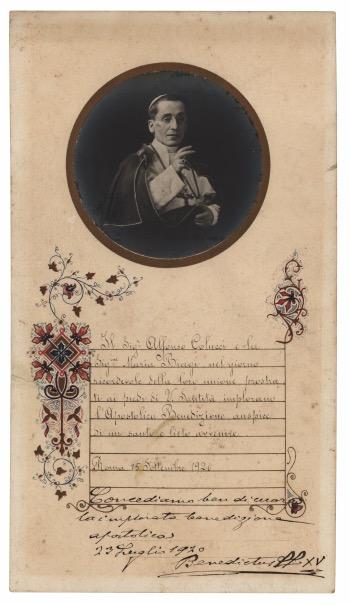 Il Sigr Alfonso Colucci e la
Sigra Maria Breggi nel giorno
ricordevole della loro unione prostra
ti ai piedi di V. Santità implorano
l'Apostolica Benedizione auspice
di un santo e lieto avvenire.
Roma 15 Settembre 1920
Concediamo ben di cuore
la implorata benedizione
apostolica
23 Luglio 1920
Benedictus PP XV